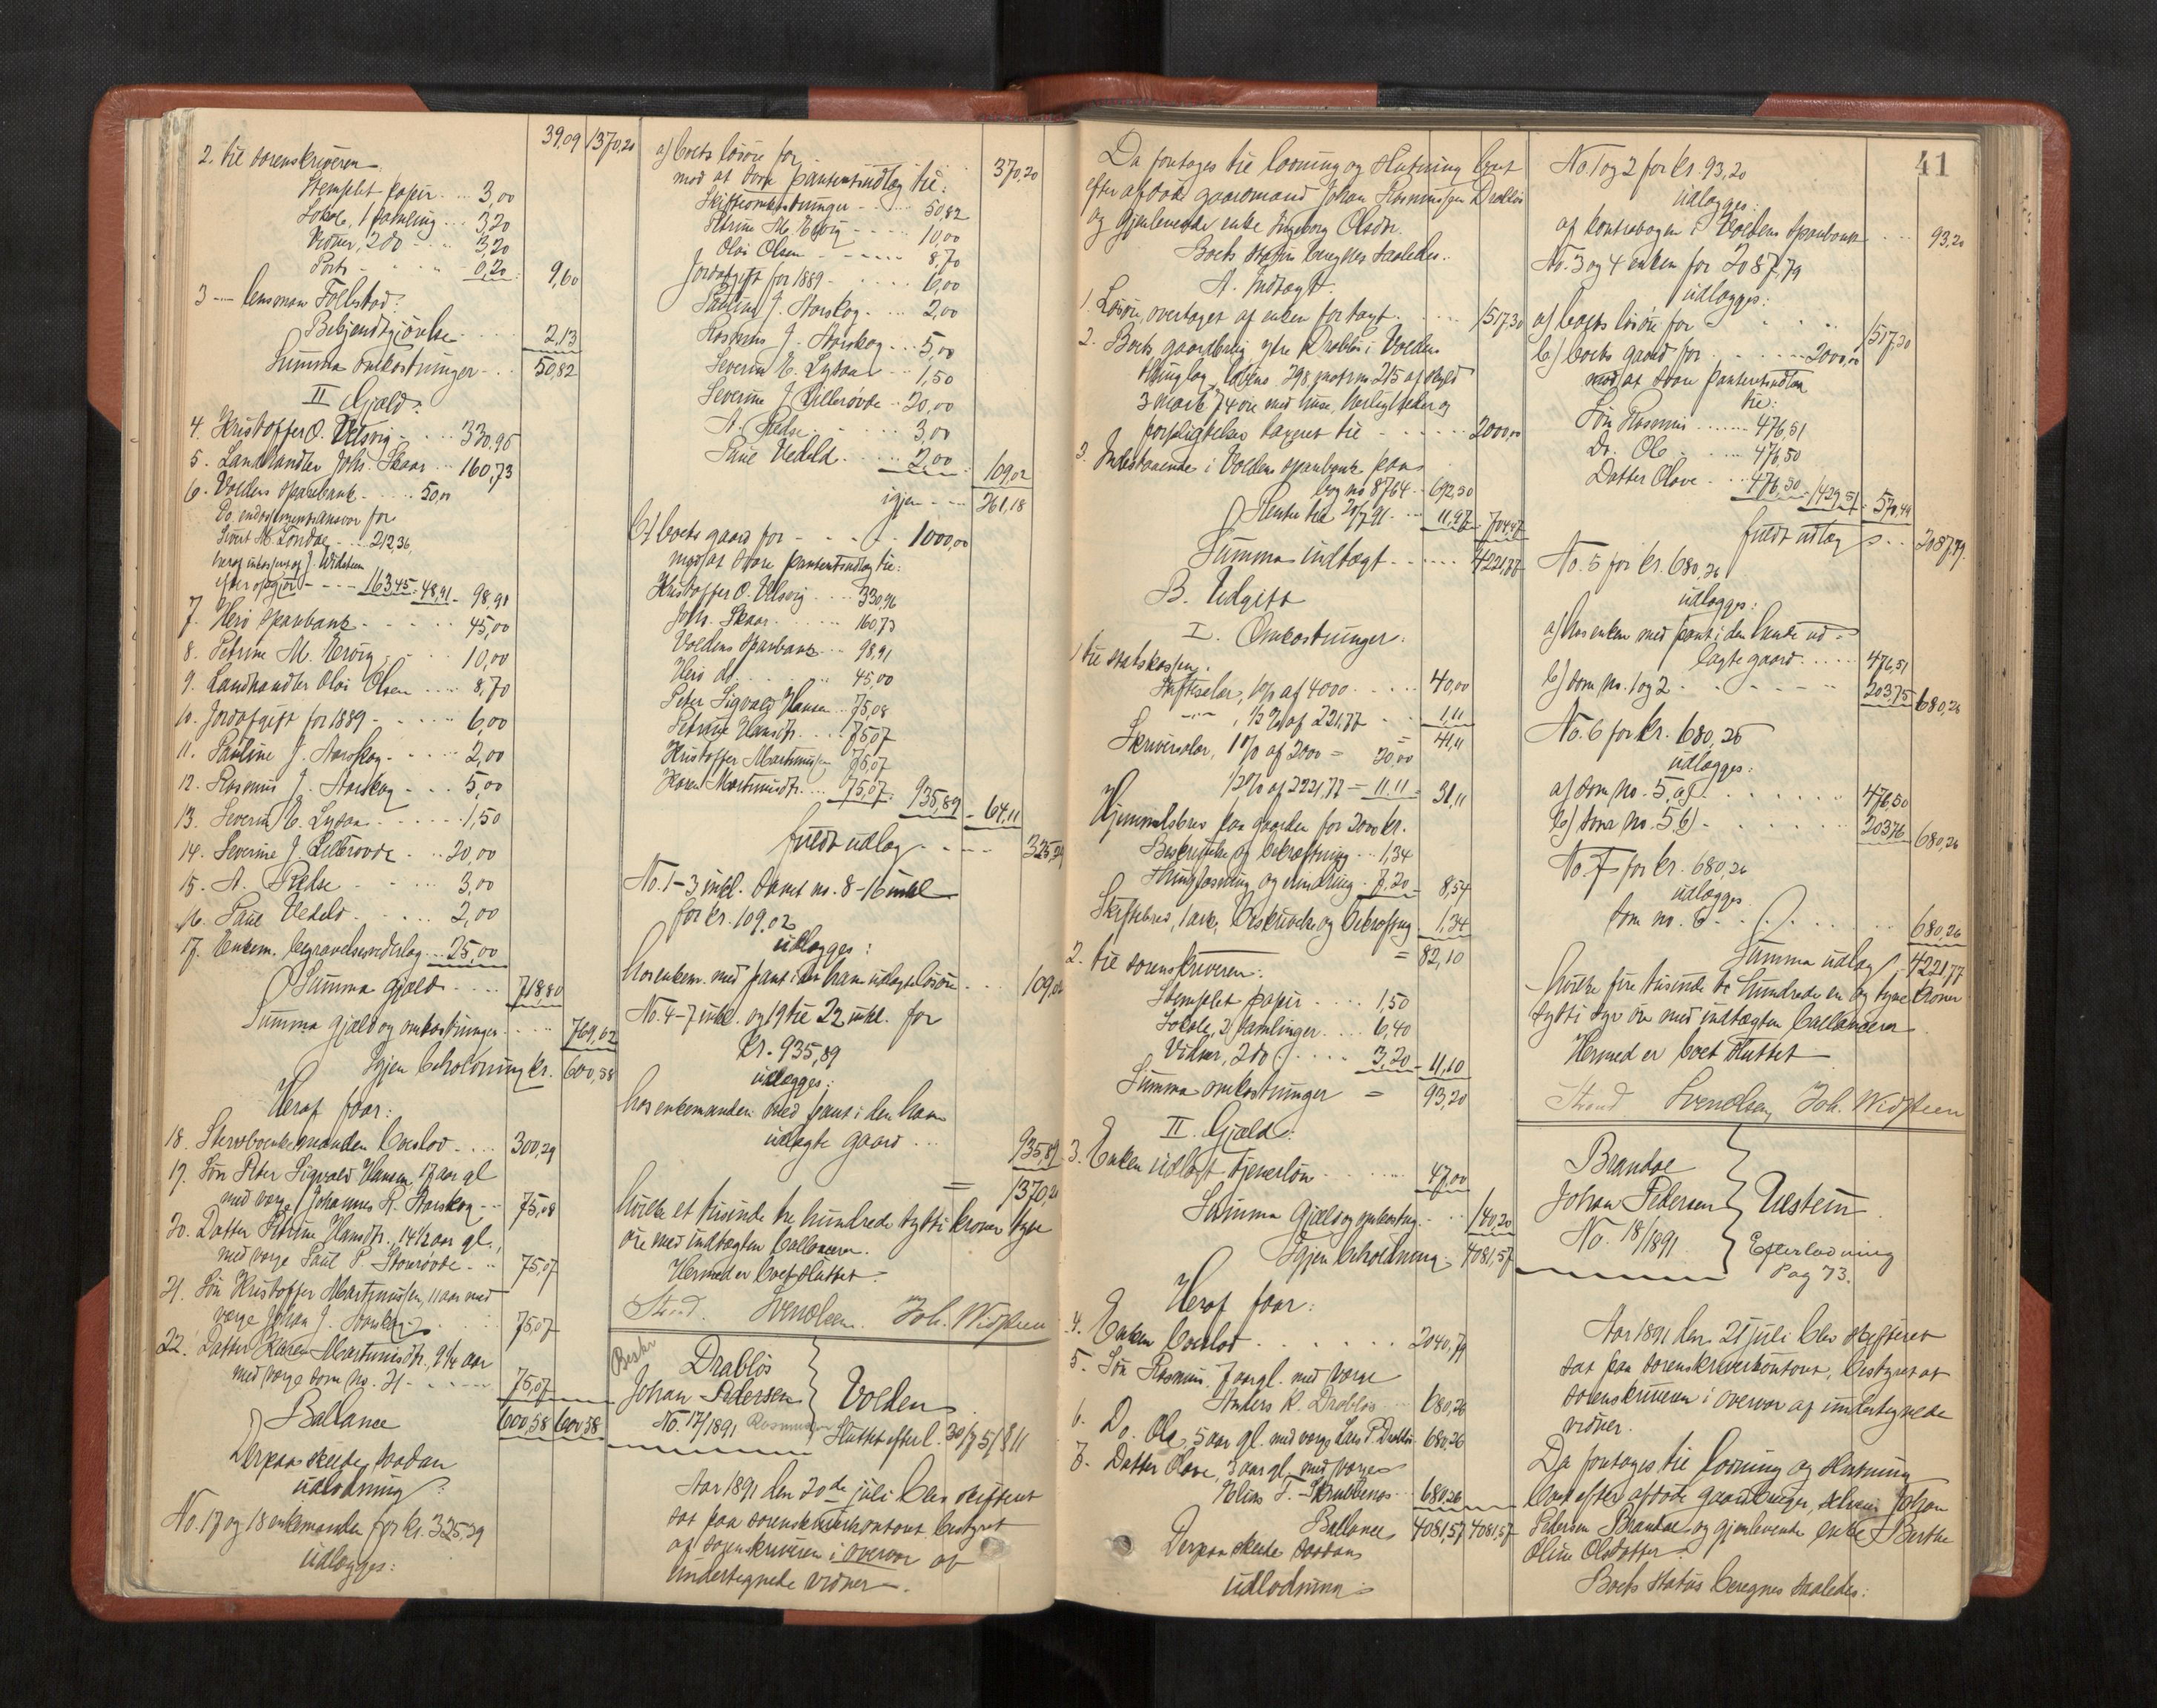 39,09 1370,20
2. til sorenskriveren
Stemplet papir 3,00
Lokale, 1 samling 3,20
Vidner, 2 do 3,20
Porto 0,20 9,60
3 lensman Follestad:
Bekjendtgjörelse 2,13
Summa omkostninger 50,82
II Gjæld:
4. Kristoffer O. 330,96
5. Landhandler Johs. Skaar 160,73
6. Voldens Sparebank 50,00
Do. endossementsansvar for
Sivert M. 212,36
heraf J. Widsteen
163,45 48,91 98,91
7. Herö Sparebank 45,00
8. Petrine M. 10,00
9. Landhandler Olai Olsen 8,70
10. Jordafgift for 1889 6,00
11. Pauline J. Aarskog 2,00
12. Rasmus J. Aarskog 5,00
13. Severin E. 1,50
14. Severine J. 20,00
15. A. 3,00
16. Paul Vedeld 2,00
17. Enkem. begravelsesvederlag 25,00
Summa gjæld 718,80
Summa gjæld og omkostninger 769,62
Igjen beholdning kr. 600,58
Heraf faar:
18. Stervboenkemanden boeslod 300,29
19. Sön Peter Sigvald Hansen, 17 aar gl
med værge Johannes R. Aarskog 75,08
20. Datter Petrine Hansdtr., 14½ aar gl.,
med værge Paul P. 75,07
21. Sön Kristoffer Martinussen, 11 aar med
værge Johan J. 75,07
22. Datter Karen Martinusdtr., 9¼ aar
med værge som no. 21 75,07
Ballance 600,58 600,58
Derpaa skede saadan
udlodning:
No. 17 og 18 enkemanden for kr. 325,29
udlægges:
a) boets lösöre for 370,20
mod at svare panteudlæg til:
Skifteomkostninger 50,82
Petrine M. 10,00
Olai Olsen 8,70
Jordafgift for 1889 6,00
Pauline J. Aarskog 2,00
Rasmus J. Aarskog 5,00
Severin E. 1,50
Severine J. 20,00
A. 3,00
Paul Vedeld 2,00 109,02
igjen 261,18
b) boets gaard for 1000,00
mod at svare panteudlæg til:
Kristoffer O. 330,96
Johs. Skaar 160,73
Voldens Sparebank 98,91
Herö do. 45,00
Peter Sigvald Hansen 75,08
Petrine Hansdtr. 75,07
Kristoffer Martinussen 75,07
Karen Martinusdtr. 75,07 935,89 64,11
fuldt udlæg 325,29
No. 1-3 inkl. samt no. 8-16 inkl
for kr. 109,02
udlægges:
hos enkem. med pant i det ham udlagte lösöre 109,02
No. 4-7 inkl. og 19 til 22 inkl. for
kr. 935,89
udlægges:
hos enkemanden med pant i den ham
udlagte gaard 935,89
= 1370,20
hvilke et tusinde tre hundrede sytti kroner tyve
öre med indtægten ballancerer.
Hermed er boet sluttet.
Strand. Svendsen. Joh. Widsteen
Beskr
Drablös
Johan Pedersen
Rasmussen
No. 17/1891
Volden
Sluttet efter l. 30/7 51 § 11
Aar 1891 den 20de juli blev skifteret
sat paa sorenskriverkontoret, bestyret
af sorenskriveren i overvær af
undertegnede vidner.
Da foretoges til lodning og slutning boet
efter afdöde gaardmand Johan Rasmussen Drablös
og gjenlevende enke Ingeborg Olsdtr.
Boets status beregnes saaledes:
A. Indtægt.
1. Lösöre, overtaget af enken for taxt 1517,30
2. Boets gaardbrug ytre Drablös i Voldens
thinglag, löbeno. 298 matr. no. 215 af skyld
3 mark 74 öre med huse, herligheder og
forpligtelser taxeret til 2000,00
3. Indestaaende i Voldens sparebank paa
bog no 8764 692,50
Rente til 20/7 91 11,97 704,47
Summa indtægt 4221,77
B. Udgift
I. Omkostninger:
1 til statskassen:
Skiftesalær, 1% af 4000 40,00
" , ½% af 221,77 1,11
= 41,11
Skriversalær, 1% af 2000 = 20,00
½% af 2221,77 = 11,11 31,11
Hjemmelsbrev paa gaarden for 2000 kr.
Beskrivelse og bekræftning 1,34
Thinglæsning og erindring 7,20 8,54
Skiftebrev, 1 ark, beskrivelse og bekræftng 1,34
= 82,10
2. til sorenskriveren:
Stemplet papir 1,50
Lokale, 2 samlinger 6,40
Vidner, 2 do 3,20 11,10
Summa omkostninger = 93,20
II. Gjæld:
3. Enken udlagt tjenerlön 47,00
Summa gjæld og omkostng. 140,20
Igjen beholdning 4081,57
Heraf faar:
4. Enken boeslod 2040,79
5. Sön Rasmus, 7 aar gl. med værge
Anders K. Drablös 680,26
6. Do. Ole, 5 aar gl. med værge Lars P. Drablös 680,26
7. Datter Olave, 3 aar gl. med værge
Elias T. 680,26
Ballance 4081,57 4081,57
Derpaa skede saadan
udlodning:
41
No. 1 og 2 for kr. 93,20
udlægges:
af kontrabogen i Voldens Sparebank 93,20
No. 3 og 4 enken for 2087,79
udlægges:
a) boets lösöre for 1517,30
b) boets gaard for 2000,00
mod at svare panteudlæg
til:
Sön Rasmus 476,51
Do. Ole 476,50
Datter Olave 476,50 1429,51 570,49
fuldt udlæg 2087,79
No. 5 for kr. 680,26
udlægges:
a) hos enken med pant i den hende ud-
lagte gaard 476,51
b) som no. 1 og 2 203,75 680,26
No. 6 for kr. 680,26
udlægges:
a) som no. 5, a) 476,50
b) som no. 5 b) 203,76 680,26
No. 7 for kr. 680,26
udlægges
som no. 6 680,26
Summa udlæg 4221,77
hvilke fire tusinde to hundrede en og tyve kroner
sytti syv öre med indtægten ballancerer.
Hermed er boet sluttet
Strand Svendsen Joh. Widsteen
Brandal
Johan Pedersen
No. 18/1891
Ulstein
Efterlodning
Pag 73.
Aar 1891 den 21 juli blev skifteret
sat paa sorenskriverkontoret, bestyret af
sorenskriveren i overvær af undertegnede
vidner.
Da foretoges til lodning og slutning
boet efter afdöde gaardbruger, Johan
Pedersen Brandal og gjenlevende enke Berthe
Oline Olsdatter.
Boets status beregnes saaledes: